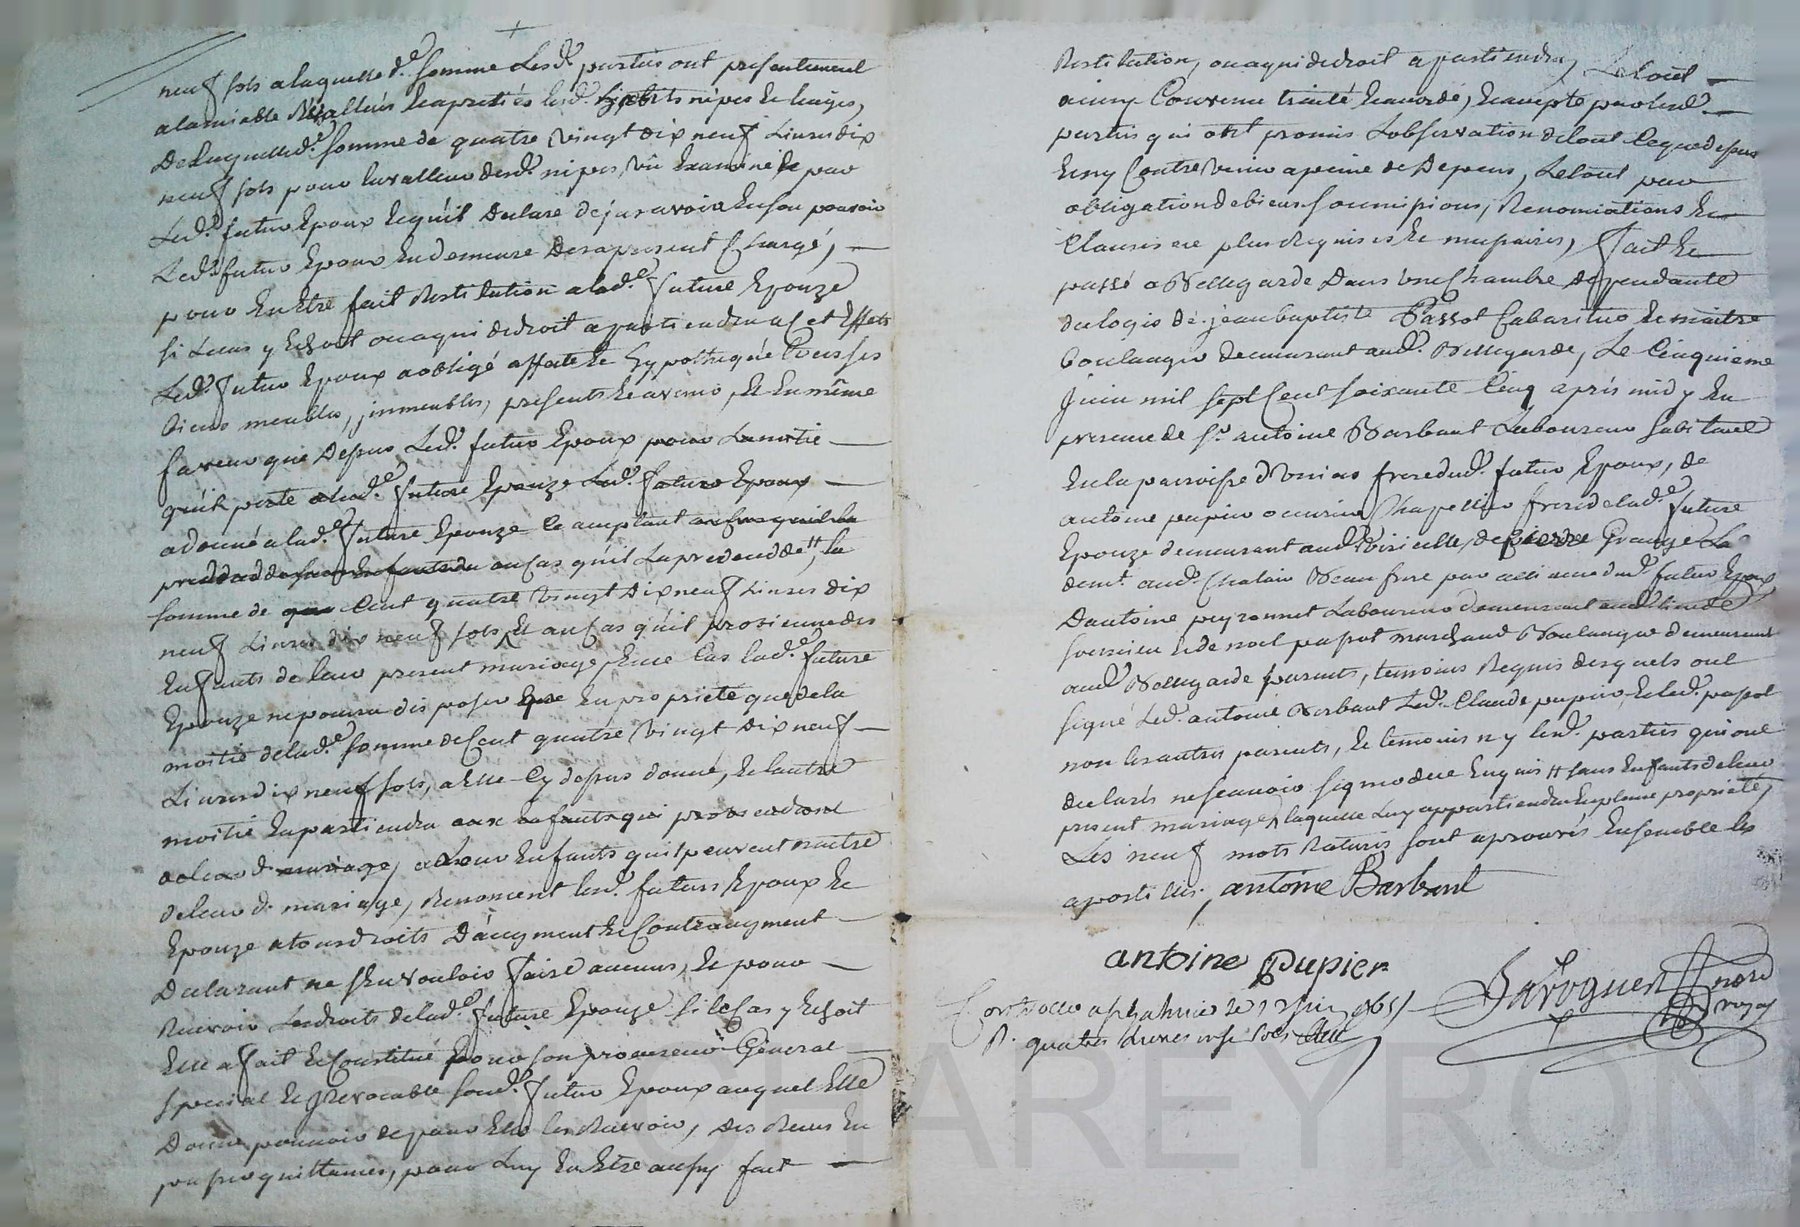 neuf sols a laquelle d.e somme Lesd. parties ont presentement
alamiable Évalluės Et apretiés lesd. habits nipes Et linges,
De laquelle d.e somme de quatre vingt dix neuf Livres dix
neuf sols pour la valleur desd. nipes, vû Examiné par
Led. futur Epoux Et qu'il Declare deja avoir En son pouvoir
Led. futur Epoux En demeure Des apresent Chargé, —
pour En Etre fait Restitution a lad.e future Epouze
si Lieus y Echoit ou a qui de droit apartiendra a Cet Effet
Led. futur Epoux a obligé affecté Et hypothequé tous ses
biens meubles, immeubles, presents Et avenir, Et En même
faveur que Dessus Led. futur Epoux pour Lamitié —
qu'il porte a lad.e future Epouze Led. futur Epoux —
a donné a lad.e future Epouze Ce acceptant au cas quil la
predecede sans Enfants au cas qu'il La predecedde # la
somme de Cent quatre vingt Dix neuf Livres dix
neuf Livres dix neuf sols, Et au Cas qu'il proviennes des
Enfants de leur present mariage, En ce Cas lad.e future
Epouze ne pourra disposer En proprieté que de la
moitié de lad.e somme de Cent quatre vingt Dix neuf —
Livres dix neuf sols, a Elle Cy dessus donné, Et l'autre
moitié En partiendra aux Enfants qui proviendront
de leur d. mariage, a leurs Enfants quil peuvent naitre
de leur d. mariage, Renoncent lesd. futurs Epoux Et
Epouze a tous droits Daugment Et Contreaugment —
Declarant ne sen vouloir faire aucuns, Et pour —
Recevoir Les droits de lad.e future Epouze si le Cas y Echoit
Elle a fait Et Constitué pour son procureur Géneral —
special Et Irrevocable sond. futur Epoux auquel Elle
Donne pouvoir de pour Elle les Recevoir, des Recus En
passer quittances, pour Luy En Etre aussy fait —
Restitution, ou a qui de droit apartiendra, Le tout —
ainsy Convenu traité Et acordé, Et accepté par lesd. —
parties qui ont promis Lobservation de tout Ce que dessus
Et ny Contrevenir a peine de Depens, Le tout par
obligation de biens soumissions, Renonciations Et
Clauses au plus Requises Et necessaires, fait Et
passé a Bellegarde Dans une Chambre dependante
du logis de jean baptiste Passot Cabaretier Et maitre
boulanger demeurant aud. Bellegarde, Le Cinquieme
juin mil sept Cent soixante Cinq après midy En
presence de S.r antoine Barbant Laboureur habitant
En la parroisse D'Unias frere dud. futur Epoux, de
antoine pupier ouvrier Chapellier frere de lad.e future
Epouze demeurant aud. de pierre Grange
dem.t aud. Chalain Beau frere par alliance dud. futur Epoux
Dantoine peyronnet Laboureur demeurant
Et de noel papot marchand Boulanger demeurant
aud. Bellegarde parents, temoins Requis desquels ont
signé Led. antoine Barbant Led. Claude pupier, Et led. papot
non les autres parents, Et temoins ny lesd. parties qui ont
declarés ne scavoir signer de ce Enquis # sans Enfants de leur
present mariage, laquelle Luy appartiendra En pleine proprieté,
Les neuf mots Raturés sont aprouvés Ensemble les
apostilles, antoine Barbant
antoine Pupier
Laroguer nore
royal
Controllé a le 12 juin 1765
R. quatre livres sols
CHAREYRON